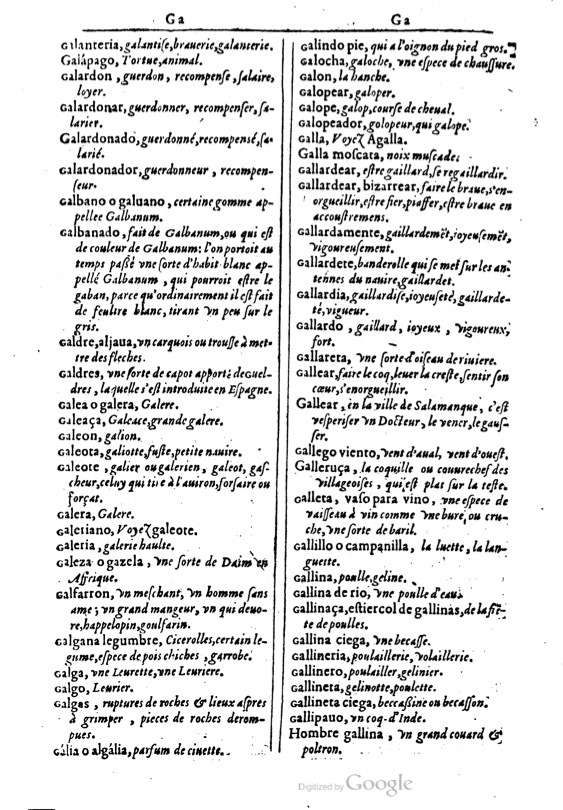 Ga
Galanteria, galantise, brauerie, galanterie.
Galápago, Tortue, animal.
Galardon, guerdon, recompense, salaire,
loyer.
Galardonar, guerdonner, recompenser, sa-
larier.
Galardonado, guerdonné, recompensé, sa-
larié.
Galardonador, guerdonneur, recompen-
seur.
Galbano o galuano, certaine gomme ap-
pellee Galbanum.
Galbanado, fait de Galbanum, ou qui est
de couleur de Galbanum: l'on portoit au
temps passé vne sorte d'habit blanc ap-
pellé Galbanum, qui pourroit estre le
gaban, parce qu'ordinairement il est fait
de feultre blanc, tirant vn peu sur le
gris.
Galdre, aljaua, vn carquois ou trousse à met-
tre des fleches.
Galdres, vne sorte de capot apporté de Guel-
dres, laquelle s'est introduite en Espagne.
Galea o galera, Galere.
Galeaça, Galeace, grande galere.
Galeon, galion.
Galeota, galiotte, fuste, petite nauire.
Galeote, galier ou galerien, galeot, gas-
cheur, celuy qui tire à l'auiron, forsaire ou
forçat.
Galera, Galere.
Galetiano, Voyez galeote.
Galeria, galerie haulte.
Galeza o gazela, vne sorte de Daim en
Affrique.
Galfarron, vn meschant, vn homme sans
ame; vn grand mangeur, vn qui deuo-
re, happelopin, goulfarin.
Galgana legumbre, Cicerolles, certain le-
gume, espece de pois chiches, garrobe.
Galga, vne Leurette, vne Leuriere.
Galgo, Leurier.
Galgas, ruptures de roches & lieux aspres
à grimper, pieces de roches derom-
pues.
Gália o algália, parfum de ciuette.
Ga
Galindo pie, qui a l'oignon du pied gros.
Galocha, galoche, vne espece de chaussure.
Galon, la hanche.
Galopear, galoper.
Galope, galop, course de cheual.
Galopeador, golopeur, qui galope.
Galla, Voyez Agalla.
Galla moscata, noix muscade.
Gallardear, estre gaillard, se regaillardir.
Gallardear, bizarrear, faire le braue, s'en-
orgueillir, estre fier, piaffer, estre braue en
accoustremens.
Gallardamente, gaillardemēt, ioyeusemēt,
vigoureusement.
Gallardete, banderolle qui se met sur les an-
tennes du nauire, gaillardet.
Gallardia, gaillardise, ioyeuseté, gaillarde-
té, vigueur.
Gallardo, gaillard, ioyeux, vigoureux,
fort.
Gallareta, vne sorte d'oiseau de riuiere.
Gallear, faire le coq, leuer la creste, sentir son
cœur, s'enorgueillir.
Gallear, en la ville de Salamanque, c'est
vesperiser vn Docteur, le vener, le gaus-
ser.
Gallego viento, vent d'aual, vent d'ouest.
Galleruça, la coquille ou couurechef des
villageoises, qui est plat sur la teste.
Galleta, vaso para vino, vne espece de
vaisseau à vin comme vne bure, ou cru-
che, vne sorte de baril.
Gallillo o campanilla, la luette, la lan-
guette.
Gallina, poulle, geline.
Gallina de rio, vne poulle d'eau.
Gallinaça, estiercol de gallinas, de la fiē-
te de poulles.
Gallina ciega, vne becasse.
Gallineria, poulaillerie, volaillerie.
Gallinero, poulailler, gelinier.
Gallineta, gelinotte, poulette.
Gallineta ciega, becassine ou becasson.
Gallipauo, vn coq-d'Inde.
Hombre gallina, vn grand couard &
poltron.
Digitized by Google